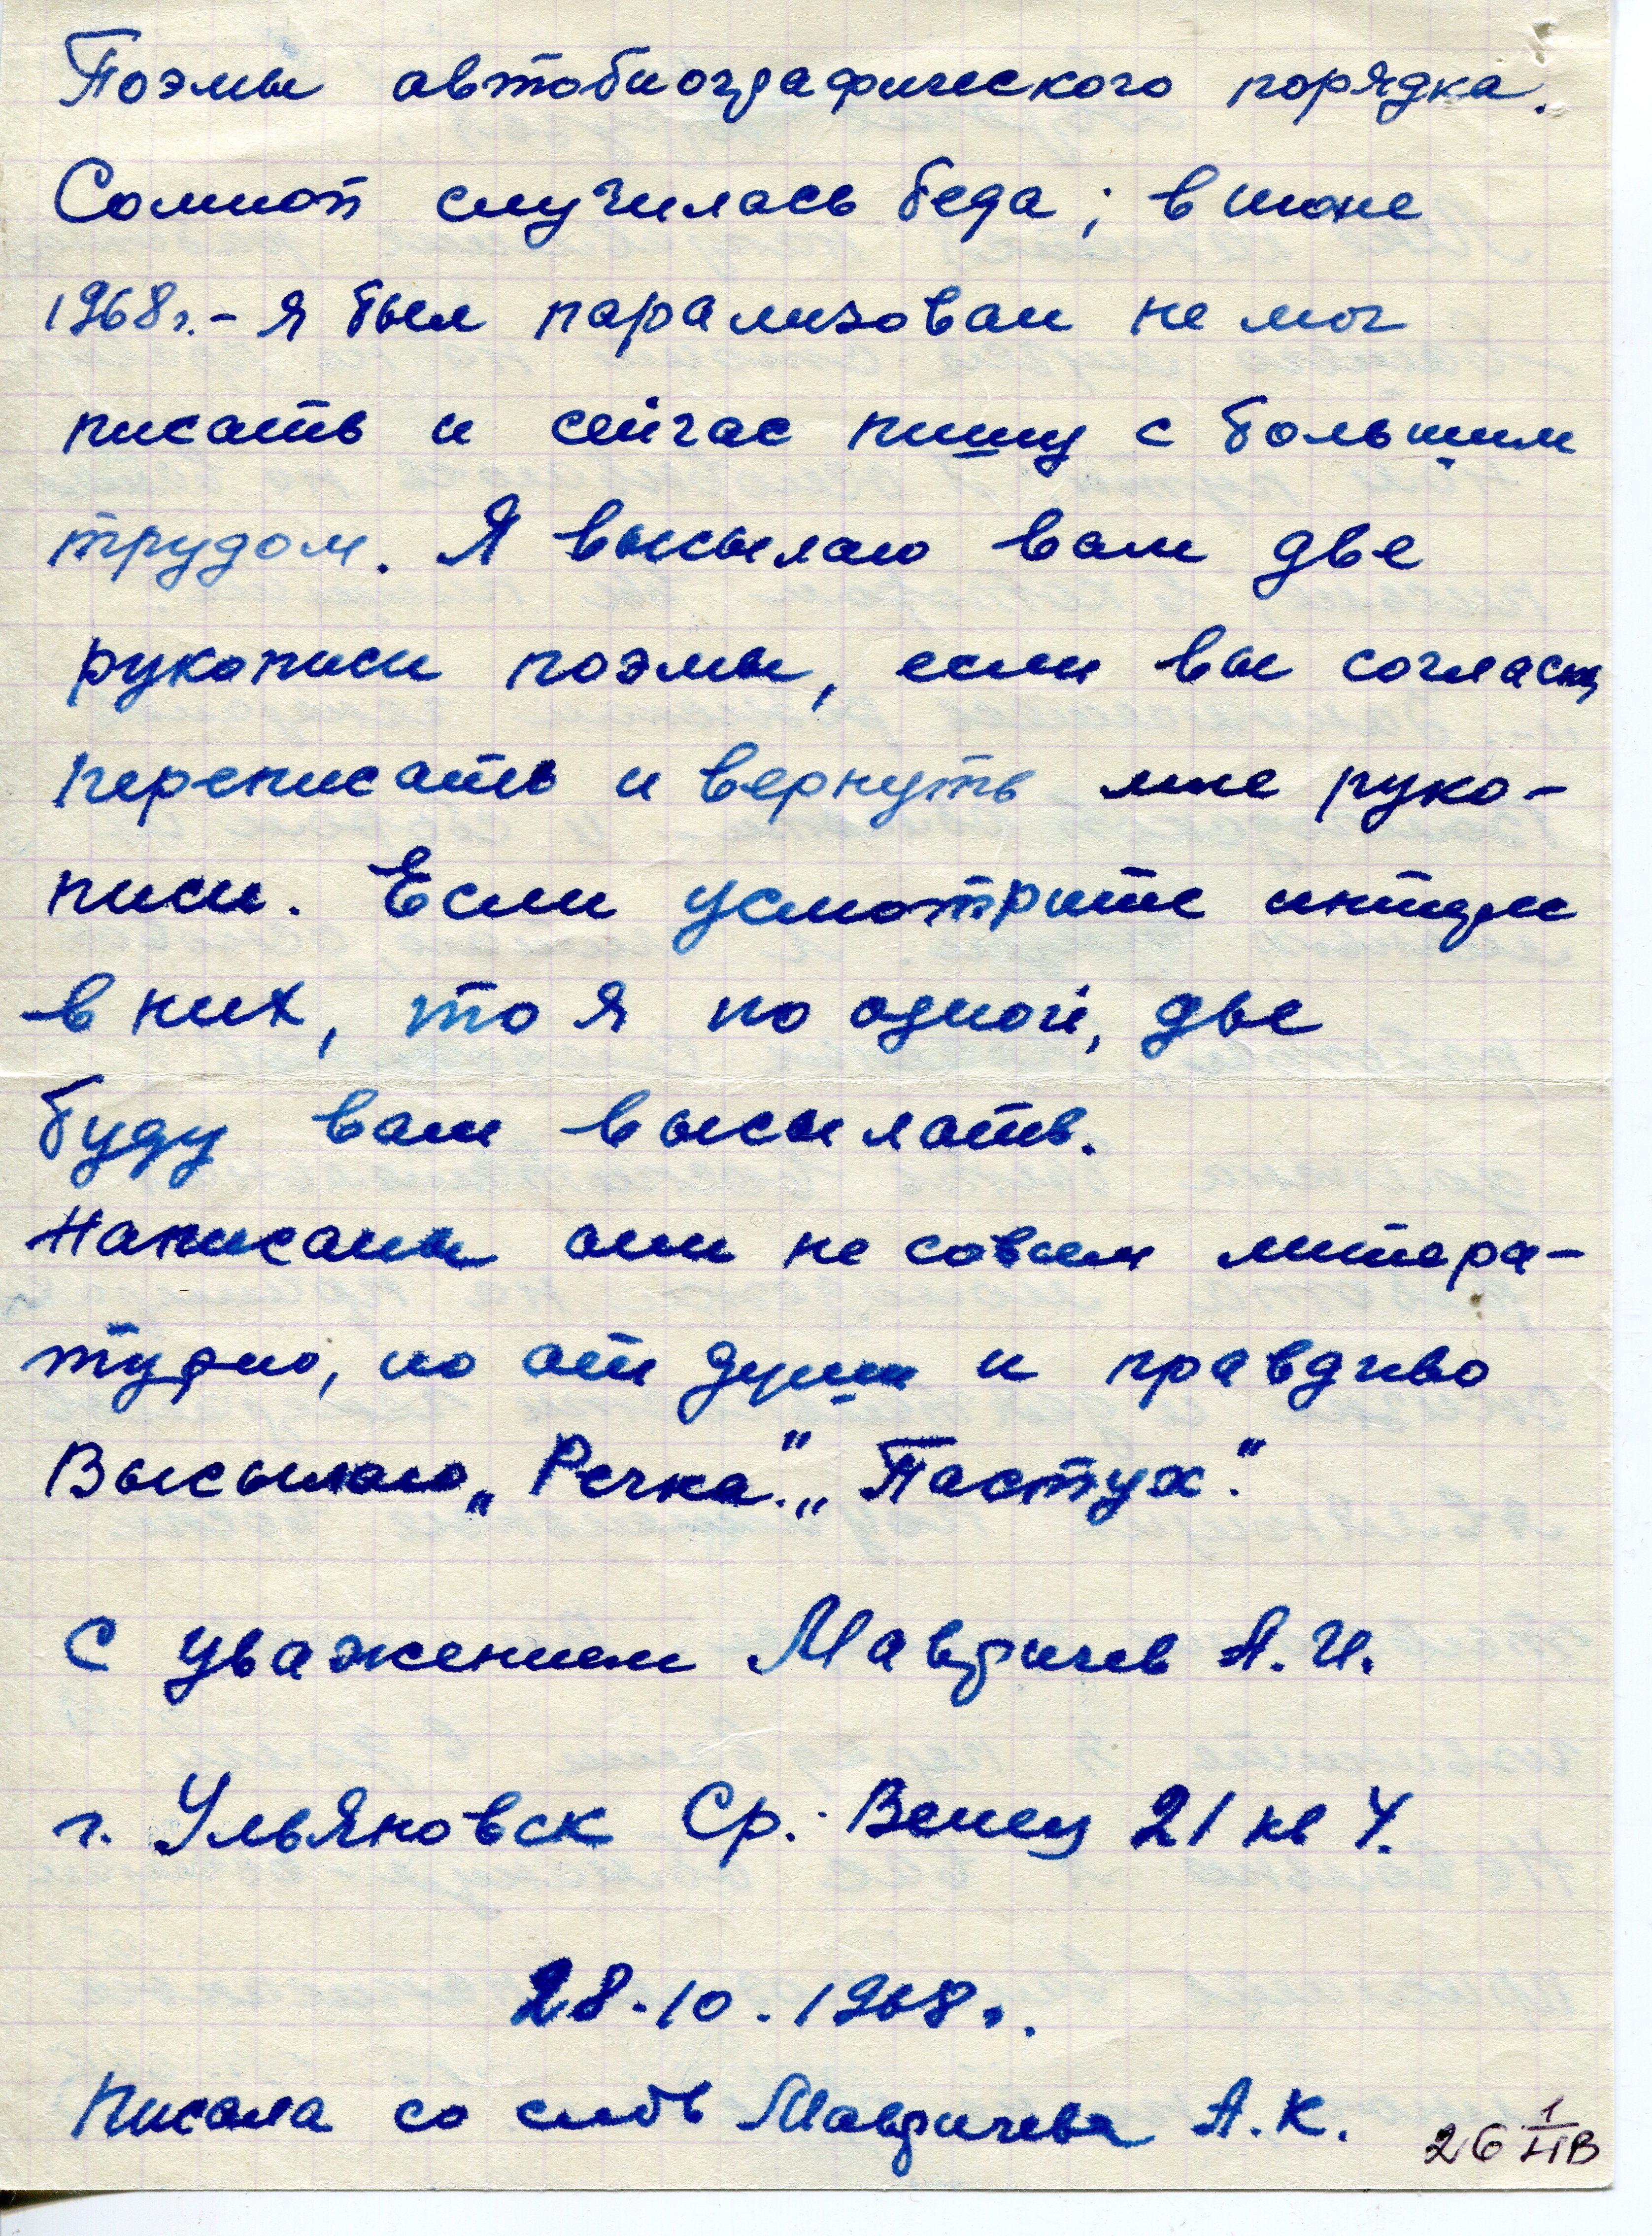 Поэмы автобиографического порядка.
Сомной случилась беда; в июне
1968г. - я был парализован не мог
писать и сейчас пишу с большим
трудом. Я высылаю вам две
рукописи поэмы, если вы согласны,
переписать и вернуть мне руко-
писи. Если усмотрите
в них, то я по одной, две
буду вам высылать.
Написаны они не совсем литера-
турно, но от души и правдиво
Высылаю „Речка.” „Пастух.”
С уважением Мавричев А.И.
г. Ульяновск Ср. Венец 21 кв 4.
28.10.1968г.
Писала со слов Мавричева А.К.
26 1/НВ